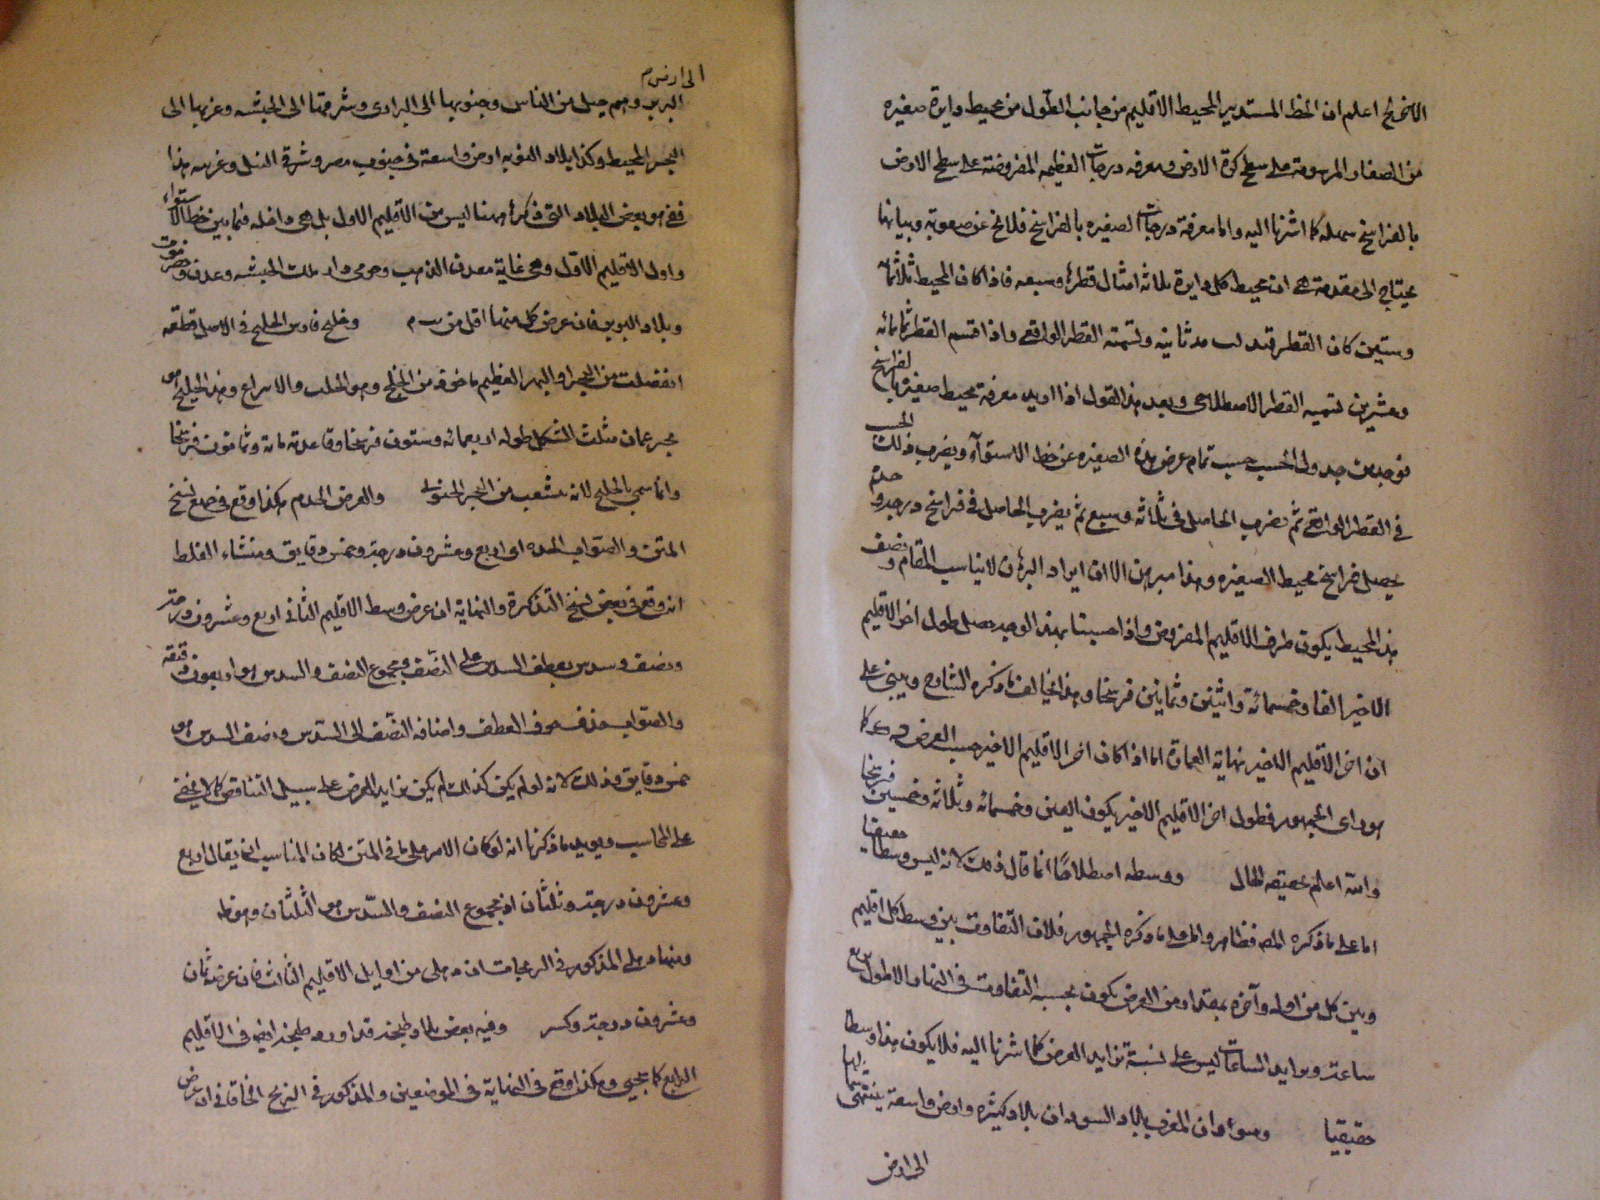 اعلم ان الخط المستدير المحيط الاقليم من جانب الطول من محيط دايرة صغيره
من الصغار المرسومة على سطح كرة الارض ومعرفه درجات العظيمه المفروضة على سطح الارض
بالفراسخ سهله كما اشرنا اليه واما معرفة درجات الصغيره بالفراسخ فلا يخ عن صعوبة وبيانها
يحتاج الى مقدمة هى ان محيط كل دايرة ثلاثه امثال قطره وسبعه فاذا كان المحيط ثلثمائه
وستين كان القطر ثانيه ولنسمه القطر الواقعى واذا قسم القطر بمائه
وعشرين لنسميه القطر الاصطلاحى وبعد هذا القول اذا اريد معرفة محيط صغيرة بالفراسخ
نوجد من جدول الجيب جيب تمام عرض هذه الصغيره عن خط الاستوآء ويضرب ذلك الجيب
في القطر الواقعى ثم يضرب الحاصل فى ثلاثه وسبع ثم يضرب الحاصل فى فراسخ درجة واحدة
يحصل فراسخ محيط الصغيره وهذا مبرهن الا ان ايراد البرهان لا يناسب المقام ونصف
هذا المحيط يكون طرف الاقليم المفروض واذا حسبنا بهذا الوجه حصل طول اخر الاقليم
الاخير الفا وخمسمائة واثنين وثمانين فرسخا وهذا يخالف ما ذكره الشارح ويبنى على
ان اخر الاقليم الاخير نهاية العمارة اما اذا كان اخر الاقليم الاخير حيث العرض كما
هو راى الجمهور فطول اخر الاقليم الاخير يكون الفين وخمسمائه وثلاثه وخمسين فرسخا
والله اعلم بحقيقه الحال ووسطه اصطلاحًا انما قال ذلك لانه ليس وسطا حقيقيا
اما على ما ذكره المص فظاهر واما على ما ذكره الجمهور فلان التفاوت بين وسط كل اقليم
وبين كل من اوله وآخره بمقدار من العرض يكون بحسبه التفاوت فى النهار الاطول بربع
ساعة وتزايد الساعات ليس على نسبة تزايد العرض كما اشرنا اليه فلا يكون هذا وسطا
حقيقيا وسودان المغرب بلاد السودان بلاد كثيره وارض واسعة ينتهى شمالها
الى ارض
الى ارض
البربر وهم جيل من الناس وجنوبها الى البرارى وشرقها الى الحبشه وغربها الى
البحر المحيط وكذا بلاد النوبه ارض واسعة فى جنوب مصر وشرقى النيل وغربيه هذا
بعض البلاد التى ذكره ههنا ليس من الاقليم الاول بل هى داخله فيما بين خط الاستواء
واول الاقليم الاول وهى غاية معدن الذهب وجرمى دار ملك الحبشه وعدن وحضرموت
وبلاد فان عرض كل منها اقل من وخليج فارس الخليج فى الاصل قطعه
انفصلت من البحر او النهر العظيم ماخوذ من الخلج وهو الجذب والانتزاع وهذا الخليج هو
بحر عمان مثلث الشكل طوله اربعمائه وستون فرسخا وقاعدته مائة وثمانون فرسخا
وانما سمى بالخليج لانه تشعب من البحر الجنوبى والعرض هكذا وقع فى جميع نسخ
المتن والصواب اى اربع وعشرون درجة وخمس دقايق ومنشاء الغلط
انه وقع فى بعض نسخ التذكرة والنهاية ان عرض وسط الاقليم الثانى اربع وعشرون درجة
ونصف وسدس بعطف السدس على النصف ومجموع النصف والسدس هو اربعون دقيقة
والصواب حذف حرف العطف واضافه النصف الى السدس ونصف السدس هو
خمس دقايق وذلك لانه لو لم يكن كذلك لم يكن تزايد العرض على سبيل التناقص كما لا يخفى
على المحاسب ويويد ما ذكرنا انه لو كان الامر على ما فى المتن لكان المناسب ان يقال اربع
وعشرون درجة وثلثان اذ مجموع النصف والسدس هو الثلثان وهو ظ
ومنها دهلى المذكور فى الزيجات ان دهلى من اوايل الاقليم الثالث فان عرضه ثمان
وعشرون درجة وكسر وفيه بعض بلاد طنجه قد اورد طنجه ايضا فى الاقليم
الرابع كما يجيئ وهكذا وقع فى النهاية فى الموضعين والمذكور فى الزيج الخاقانى ان عرض